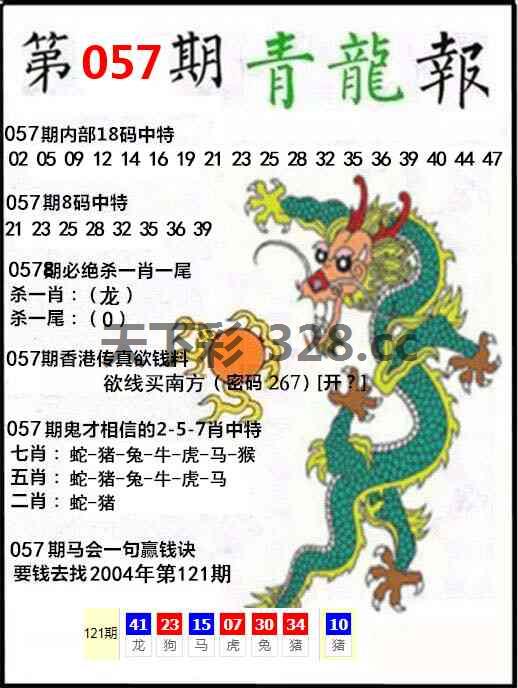 第057期青龍報
057期内部18码中特
02 05 09 12 14 16 19 21 23 25 28 32 35 36 39 40 44 47
057期8码中特
21 23 25 28 32 35 36 39
0578期必绝杀一肖一尾
杀一肖:(龙)
杀一尾:(0)
天下彩 328.cc
057期香港传真欲钱料
欲线买南方(密码 267)[开?]
057期鬼才相信的2-5-7肖中特
七肖:蛇-猪-兔-牛-虎-马-猴
五肖:蛇-猪-兔-牛-虎-马
二肖:蛇-猪
057期马会一句赢钱诀
要钱去找2004年第121期
121期 41 23 15 07 30 34 10
龙 狗 马 虎 兔 猪 猪